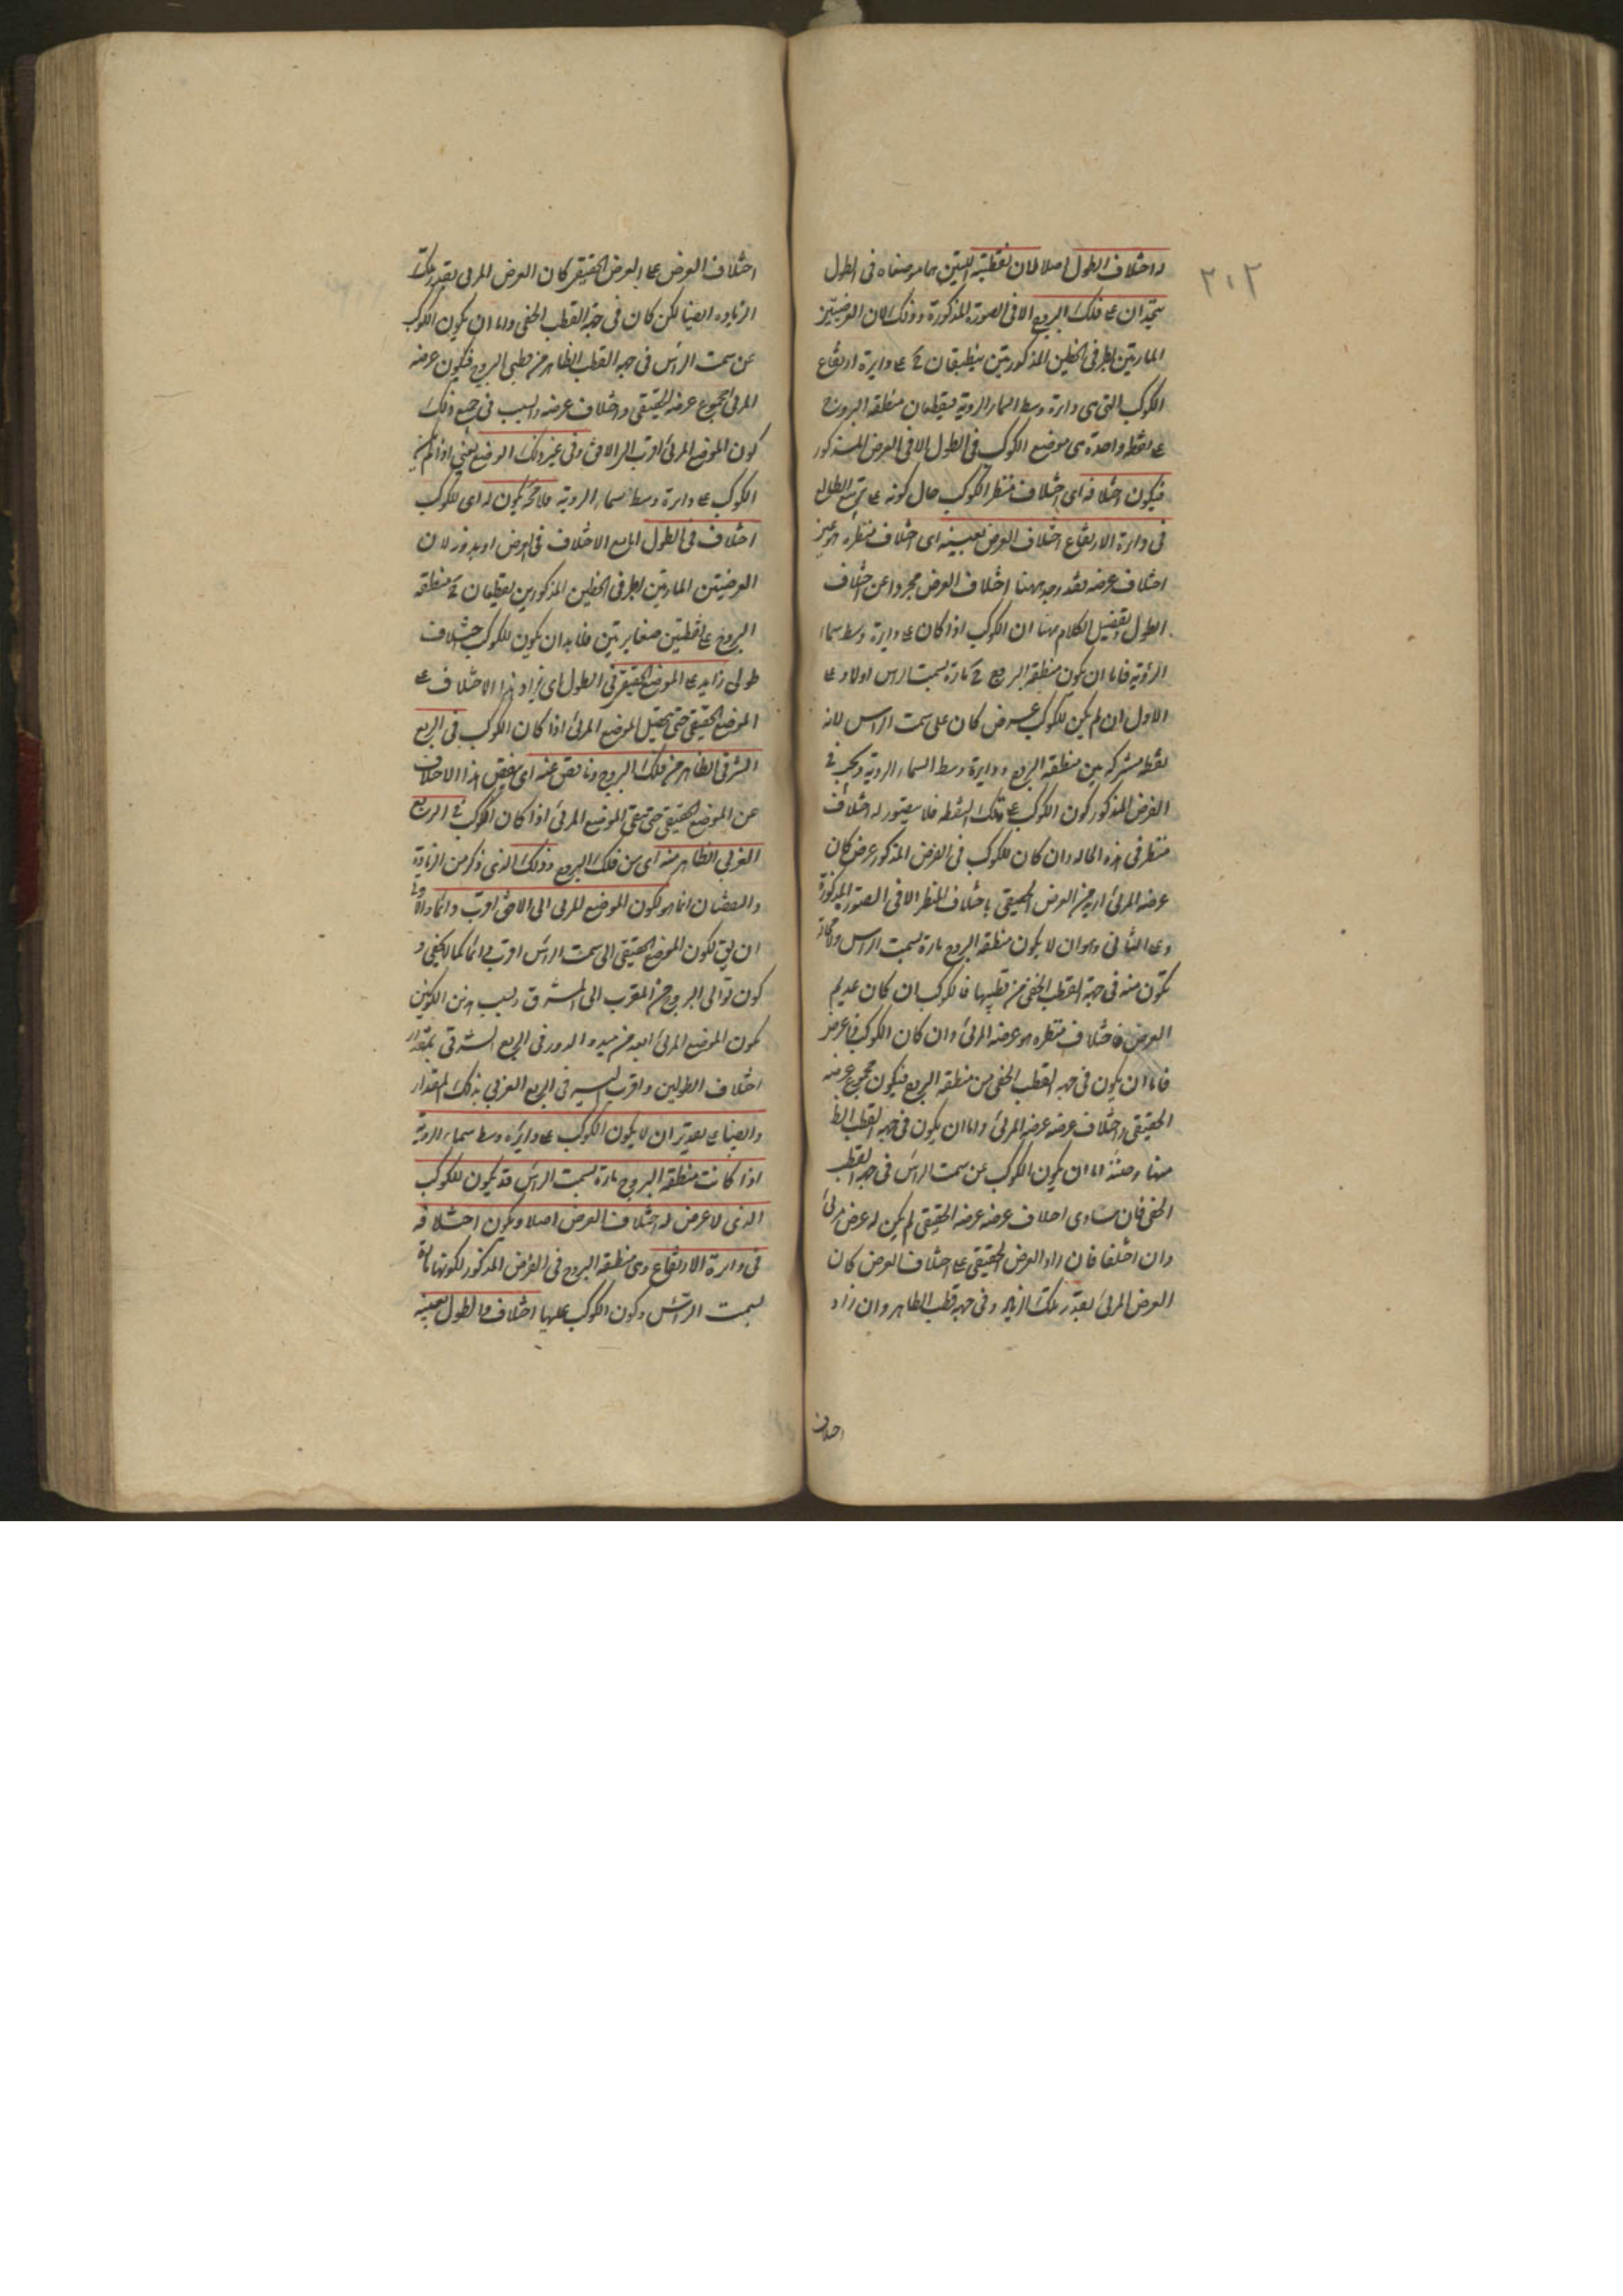 له اختلاف الطول اصلا لان نقطتيه اللتين هما موضعاه فى الطول
٣١٢
تتحدان على فلك البروج لا فى الصورة المذكورة وذلك لان العرضيتين
المارتين بطرفى الخطين المذكورتين ينطبقان ح على دايرة ارتفاع
الكوكب التى هى دايرة وسط السماء الروية فيقطعان منطقة البروج
على نقطة واحدة هى موضع الكوكب فى الطول لا فى العرض المذكور
فيكون اختلافه اى اختلاف منظر الكوكب حال كونه على
فى دايرة الارتفاع اختلاف العرض بعينه اى اختلاف منظره هو عين
اختلاف عرضه فقد وجد ههنا اختلاف العرض مجردا عن اختلاف
الطول وتفصيل الكلام ههنا ان الكوكب اذا كان على دايرة وسط سماء
الرؤية فاما ان يكون منطقة البروج ح مارة بسمت الراس اولا وعلى
الاول ان لم يكن للكوكب عرض كان على سمت الراس لانه
نقطة مشتركة بين منطقة البروج ودايرة وسط السماء الروية ويجب فى
الفرض المذكور كون الكوكب على تلك النقطة فلا يتصور له اختلاف
منظر فى هذه الحالة وان كان للكوكب فى الفرض المذكور عرض كان
عرضه المرئى ازيد من العرض الحقيقى باختلاف المنظر لا فى الصورة المذكورة
وعلى الثانى وهو ان لا يكون منطقة البروج مارة بسمت الراس
تكون منه فى جهة القطب الخفى من قطبيها فالكوكب ان كان عديم
العرض فاختلاف منظره هو عرضه المرئى وان كان الكوكب ذا عرض
فاما ان يكون فى جهة القطب الخفى من منطقة البروج فيكون مجموع عرضه
الحقيقى واختلاف عرضه عرضه المرئى واما ان يكون فى جهة القطب الظ
منها وحينئذ اما ان يكون الكوكب عن سمت الراس فى جهة القطب
الخفى فان تساوى اختلاف عرضه عرضه الحقيقى لم يكن له عرض مرئى
وان اختلفا فان زاد العرض الحقيقى على اختلاف العرض كان
العرض المرئى بقدر تلك الزيادة وفى جهة قطب الظاهر وان زاد
اختلاف
اختلاف العرض على العرض الحقيقى كان العرض المرئى بقدر تلك
الزيادة ايضا لكن كان فى جهة القطب الخفى واما ان يكون الكوكب
عن سمت الراس فى جهة القطب الظاهر من قطبى البروج فيكون عرضه
المرئى مجموع عرضه الحقيقى واختلاف عرضه والسبب فى جميع ذلك
كون الموضع المرئى اقرب الى الافق وفى غير ذلك الوضع يعنى اذا لم يكن
الكوكب على دايرة وسط سماء الروية فلا محة يكون له اى للكوكب
اختلاف فى الطول اما مع الاختلاف فى العرض او بدونه لان
العرضيتين المارتين بطرفى الخطين المذكورين يقطعان ح منطقة
البروج على نقطتين متغايرتين فلا بد ان يكون للكوكب اختلاف
طولى زايد على الموضع الحقيقى فى الطول اى يزاد هذا الاختلاف على
الموضع الحقيقى حتى يحصل الموضع المرئى اذا كان الكوكب فى الربع
الشرقى الظاهر من فلك البروج وناقص عنه اى ينقص هذا الاختلاف
عن الموضع الحقيقى حتى يبقى الموضع المرئى اذا كان الكوكب فى الربع
الغربى الظاهر منه اى من فلك البروج وذلك الذى ذكر من الزيادة
والنقصان انما هو لكون الموضع المرئى الى الافق اقرب دائما
ان يق لكون الموضع الحقيقى الى سمت الراس اقرب دائما كما لا يخفى و
كون توالى البروج من المغرب الى المشرق وبسبب هذين الكونين
يكون الموضع المرئى ابعد من مبدء الدور فى الربع الشرقى بمقدار
اختلاف الطولين واقرب اليه فى الربع الغربى بذلك المقدار
وايضا على تقدير ان لا يكون الكوكب على دايرة وسط سماء الروية
اذا كانت منطقة البروج مارة بسمت الراس قد يكون للكوكب
الذى لا عرض له اختلاف العرض اصلا ويكون اختلافه
فى دايرة الارتفاع وهى منطقة البروج فى الفرض المذكور لكونها مارة
بسمت الراس وكون الكوكب عليها اختلاف الطول بعينه